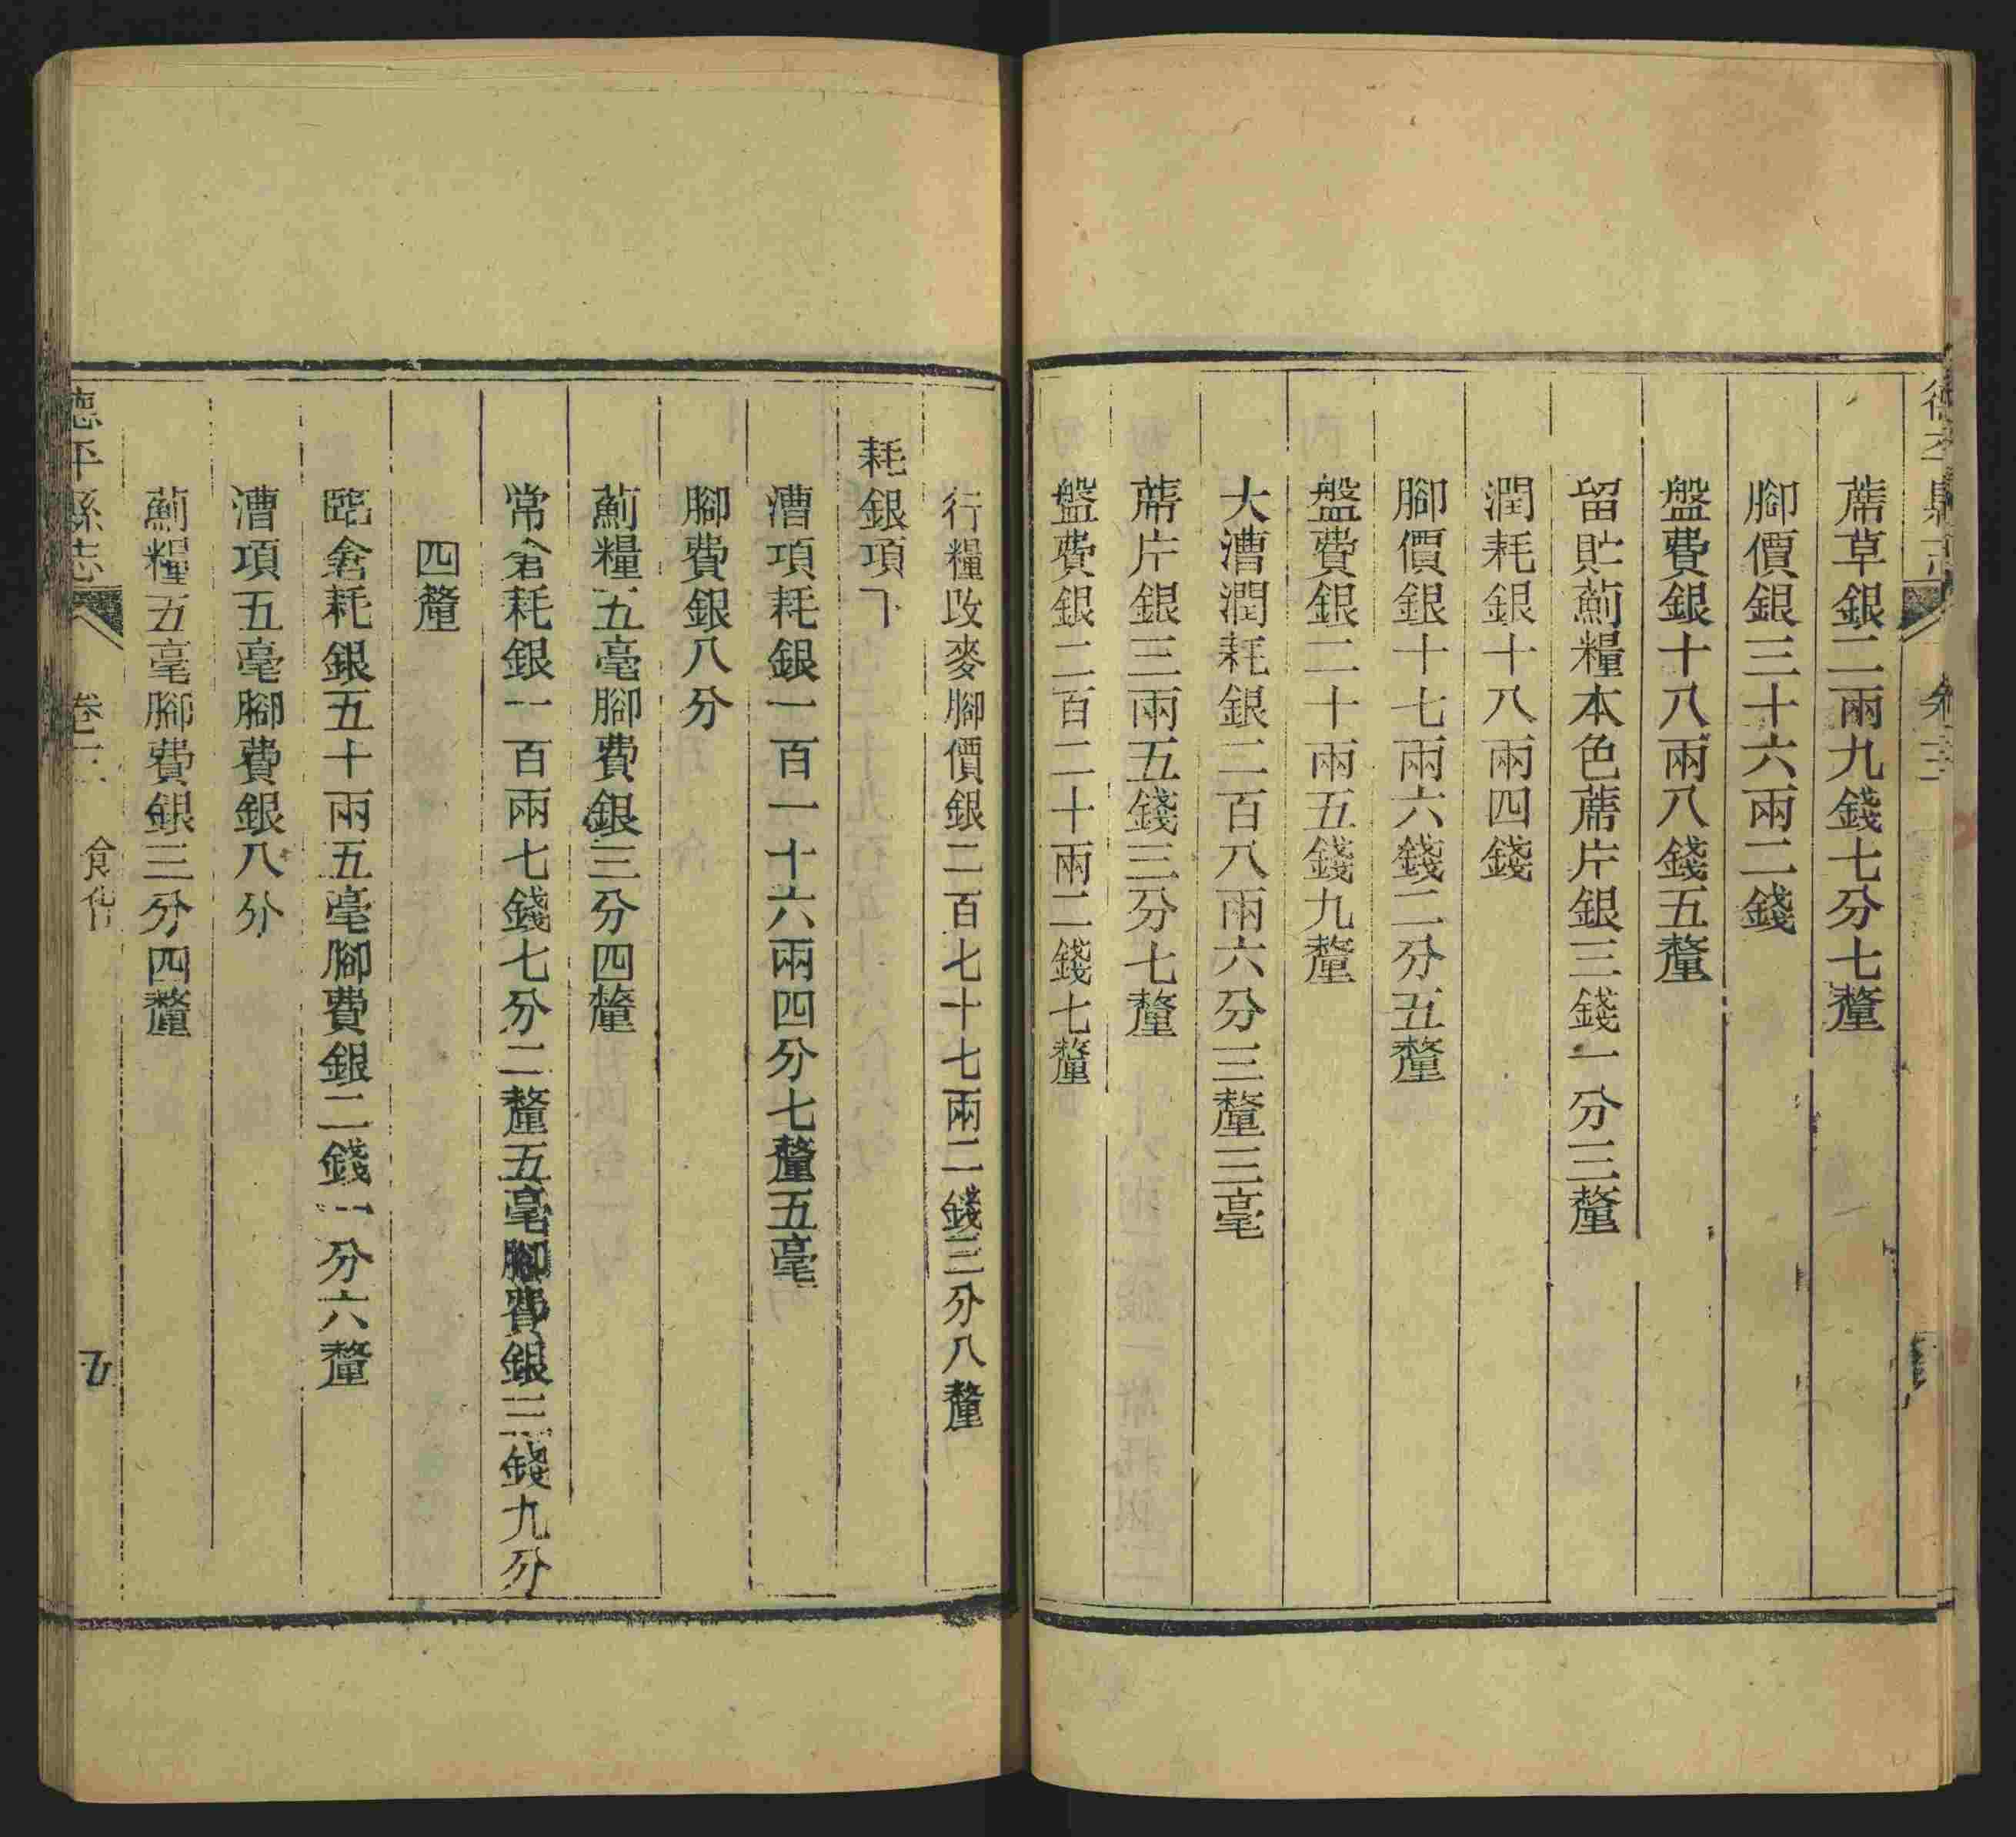 蓆草銀二兩九錢七分七釐
腳價銀三十六兩二錢
盤費銀十八兩八錢五釐
留貯薊糧本色蓆片銀三錢一分三釐
潤耗銀十八兩四錢
腳價銀十七兩六錢二分五釐
盤費銀二十兩五錢九釐
大漕潤耗銀二百八兩六分三釐三毫
蓆片銀三兩五錢三分七釐
盤費銀二百二十兩二錢七釐
行糧改麥腳價銀二百七十七兩二錢三分八釐
耗銀項下
漕項耗銀一百一十六兩四分七釐五毫
腳費銀八分
薊糧五毫腳費銀三分四釐
常倉耗銀一百兩七錢七分二釐五毫腳費銀三錢九分
四釐
臨倉耗銀五十兩五毫腳費銀二錢一分六釐
漕項五毫腳費銀八分
薊糧五毫腳費銀三分四釐
德平縣志 卷三 食貨